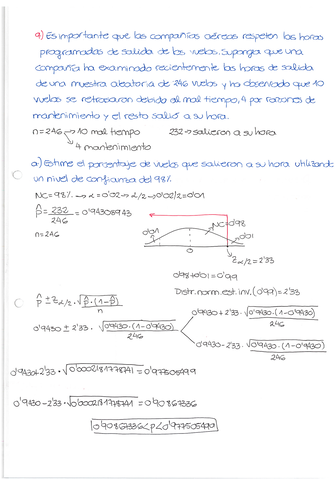 9) Es importante que las compañías aéreas respeten las horas
programadas de salida de los vuelos. Suponga que una
compañía ha examinado recientemente las horas de salida
de una muestra aleatoria de 246 vuelos y ha observado que 10
vuelos se retrasaron debido al mal tiempo, 4 por razones de
mantenimiento y el resto salió a su hora.
n=246 → 10 mal tiempo 232 → salieron a su hora
↘ 4 mantenimiento
a) Estime el porcentaje de vuelos que salieron a su hora utilizando
un nivel de confianza del 98%
NC=98% → α=0'02 → α/2 → 0'02/2=0'01
p̂ = 232/246 = 0'94308943
n=246
NC=0'98
0'01 0'01
0
Z α/2 = 2'33
0'98+0'01=0'99
Distr. norm. est. inv. (0'99) = 2'33
p̂ ± Z α/2 · √(p̂·(1-p̂)/n)
0'9430 + 2'33 · √(0'9430·(1-0'9430)/246)
0'9430 ± 2'33 · √(0'9430·(1-0'9430)/246)
0'9430 - 2'33 · √(0'9430·(1-0'9430)/246)
0'9430+2'33 · √0'0002181778741 = 0'97750549
0'9430-2'33 · √0'0002181778741 = 0'90867336
0'90867336<p<0'977505490